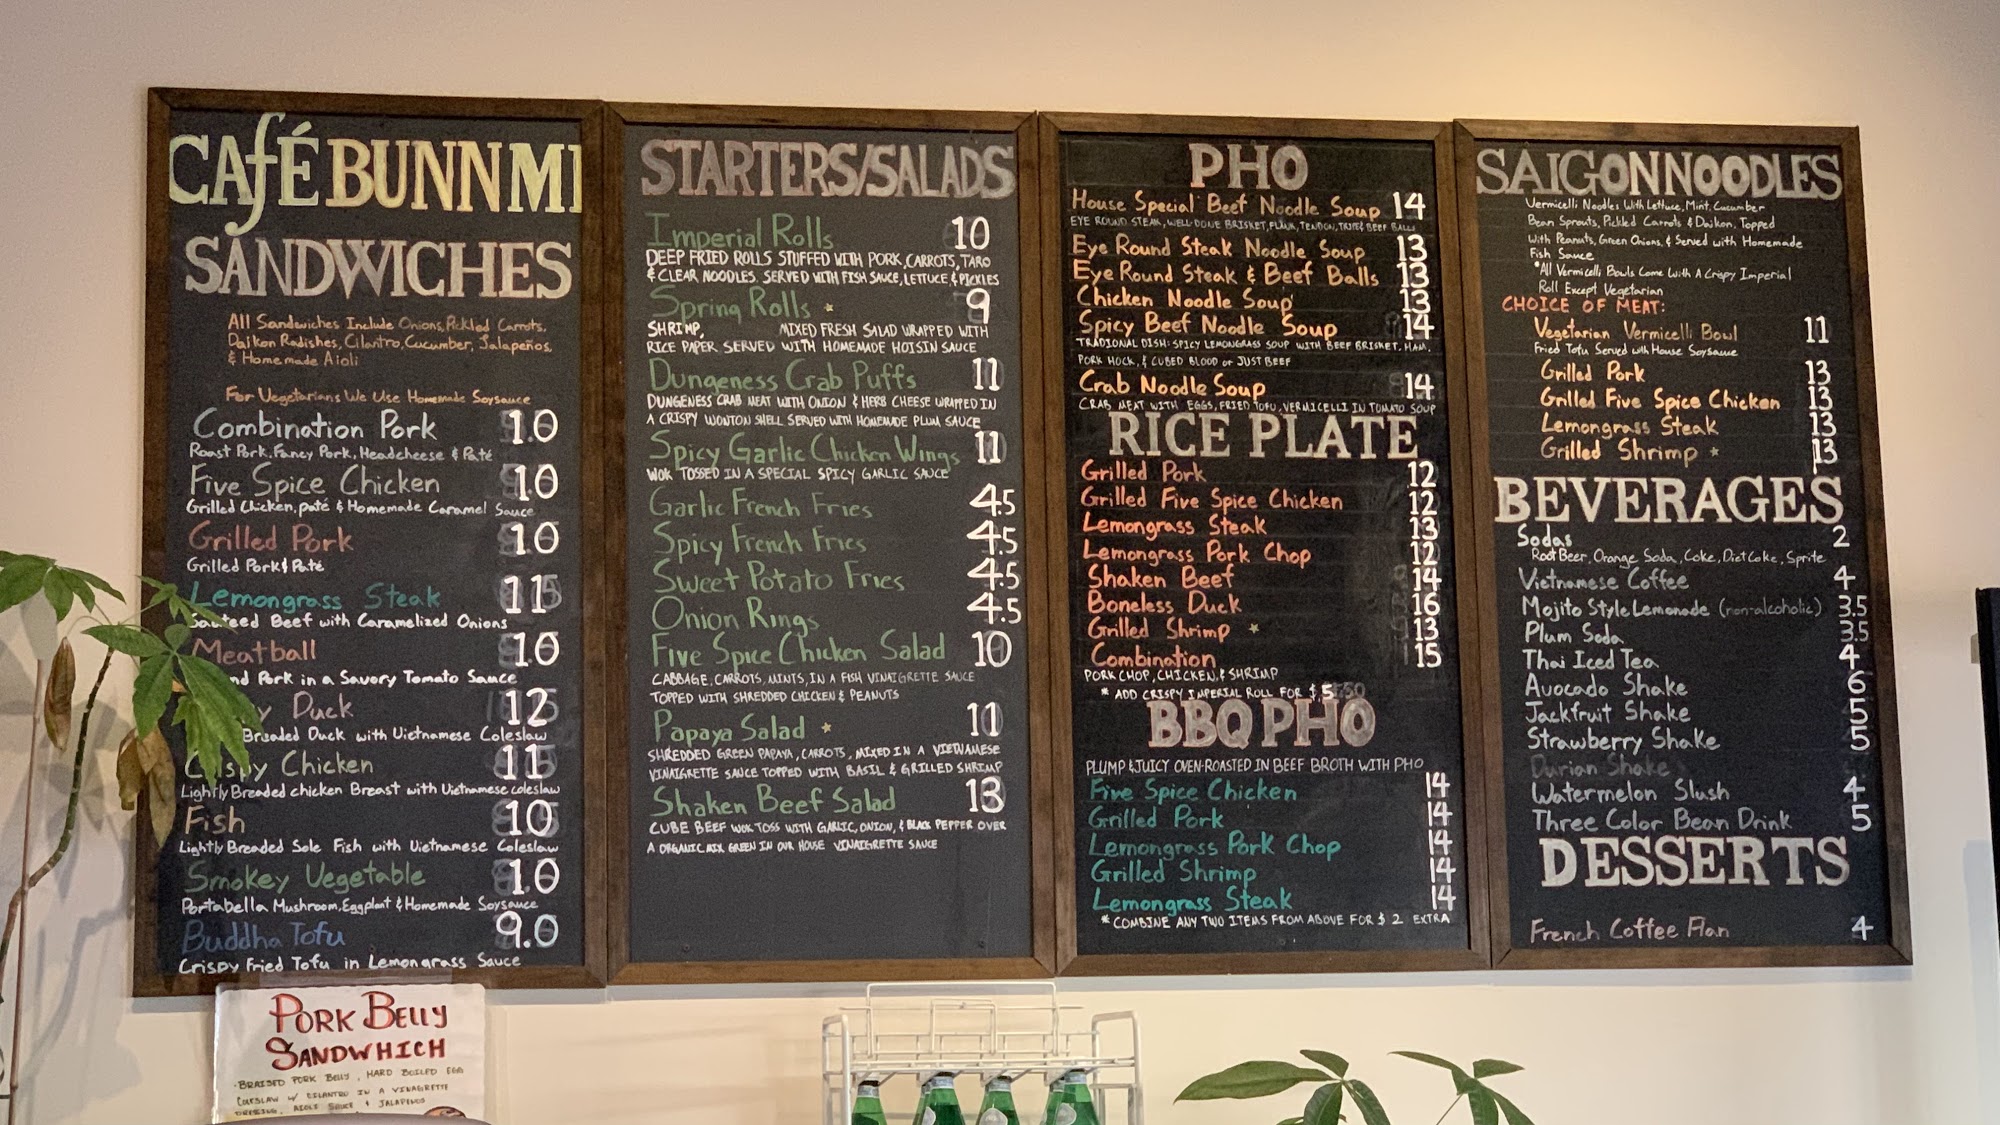 CAFÉ BUNN MI
SANDWICHES
All Sandwiches Include Onions, Pickled Carrots,
Daikon Radishes, Cilantro, Cucumber, Jalapeños,
& Homemade Aioli
For Vegetarians We Use Homemade Soysauce
Combination Pork 10
Roast Pork, Fancy Pork, Headcheese & Paté
Five Spice Chicken 10
Grilled Chicken, paté & Homemade Caramel Sauce
Grilled Pork 10
Grilled Pork & Paté
Lemongrass Steak 11
Sauteed Beef with Caramelized Onions
Meatball 10
nd Pork in a Savory Tomato Sauce
y Duck 12
Breaded Duck with Vietnamese Coleslaw
C ispy Chicken 11
Lightly Breaded Chicken Breast with Vietnamese coleslaw
Fish 10
Lightly Breaded Sole Fish with Vietnamese Coleslaw
Smokey Vegetable 10
Portabella Mushroom, Eggplant & Homemade Soysauce
Buddha Tofu 9.0
Crispy Fried Tofu in Lemongrass Sauce
PORK BELLY
SANDWHICH
- BRAISED PORK BELLY, HARD BOILED EGG
COLESLAW W/ CILANTRO IN A VINAGRETTE
DRESSING, AIOLI SAUCE & JALAPENOS
STARTERS/SALADS
Imperial Rolls 10
DEEP FRIED ROLLS STUFFED WITH PORK, CARROTS, TARO
& CLEAR NOODLES. SERVED WITH FISH SAUCE, LETTUCE, & PICKLES
Spring Rolls * 9
SHRIMP, MIXED FRESH SALAD WRAPPED WITH
RICE PAPER SERVED WITH HOMEMADE HOISIN SAUCE
Dungeness Crab Puffs 11
DUNGENESS CRAB MEAT WITH ONION & HERB CHEESE WRAPPED IN
A CRISPY WONTON SHELL SERVED WITH HOMEMADE PLUM SAUCE
Spicy Garlic Chicken Wings 11
WOK TOSSED IN A SPECIAL SPICY GARLIC SAUCE
Garlic French Fries 4.5
Spicy French Fries 4.5
Sweet Potato Fries 4.5
Onion Rings 4.5
Five Spice Chicken Salad 10
CABBAGE, CARROTS, MINTS, IN A FISH VINAIGRETTE SAUCE
TOPPED WITH SHREDDED CHICKEN & PEANUTS
Papaya Salad * 11
SHREDDED GREEN PAPAYA, CARROTS, MIXED IN A VIETNAMESE
VINAIGRETTE SAUCE TOPPED WITH BASIL & GRILLED SHRIMP
Shaken Beef Salad 13
CUBE BEEF WOK TOSS WITH GARLIC, ONION, & BLACK PEPPER OVER
A ORGANIC MIX GREEN IN OUR HOUSE VINAIGRETTE SAUCE
PHO
House Special Beef Noodle Soup 14
EYE ROUND STEAK, WELL-DONE BRISKET, FLANK, TENDON, TRIPE & BEEF BALL
Eye Round Steak Noodle Soup 13
Eye Round Steak & Beef Balls 13
Chicken Noodle Soup 13
Spicy Beef Noodle Soup 14
TRADIONAL DISH: SPICY LEMONGRASS SOUP WITH BEEF BRISKET, HAM,
PORK HOCK, & CUBED BLOOD or JUST BEEF
Crab Noodle Soup 14
CRAB MEAT WITH EGGS, FRIED TOFU, VERMICELLI IN TOMATO SOUP
RICE PLATE
Grilled Pork 12
Grilled Five Spice Chicken 12
Lemongrass Steak 13
Lemongrass Pork Chop 12
Shaken Beef 14
Boneless Duck 16
Grilled Shrimp * 13
Combination 15
PORK CHOP, CHICKEN, & SHRIMP
* ADD CRISPY IMPERIAL ROLL FOR $.5
BBQ PHO
PLUMP & JUICY OVEN-ROASTED IN BEEF BROTH WITH PHO
Five Spice Chicken 14
Grilled Pork 14
Lemongrass Pork Chop 14
Grilled Shrimp 14
Lemongrass Steak 14
* COMBINE ANY TWO ITEMS FROM ABOVE FOR $ 2 EXTRA
SAIGON NOODLES
Vermicelli Noodles With Lettuce, Mint, Cucumber
Bean Sprouts, Pickled Carrots & Daikon, Topped
with Peanuts, Green Onions, & Served with Homemade
Fish Sauce
*All Vermicelli Bowls Come With A Crispy Imperial
Roll Except Vegetarian
CHOICE OF MEAT:
Vegetarian Vermicelli Bowl 11
Fried Tofu Served with House Soysauce
Grilled Pork 13
Grilled Five Spice Chicken 13
Lemongrass Steak 13
Grilled Shrimp * 13
BEVERAGES
Sodas 2
Root Beer, Orange Soda, Coke, Diet Coke, Sprite
Vietnamese Coffee 4
Mojito Style Lemonade (non-alcoholic) 3.5
Plum Soda 3.5
Thai Iced Tea 4
Avocado Shake 6
Jackfruit Shake 5
Strawberry Shake 5
Durian Shake
Watermelon Slush 4
Three Color Bean Drink 5
DESSERTS
French Coffee Flan 4